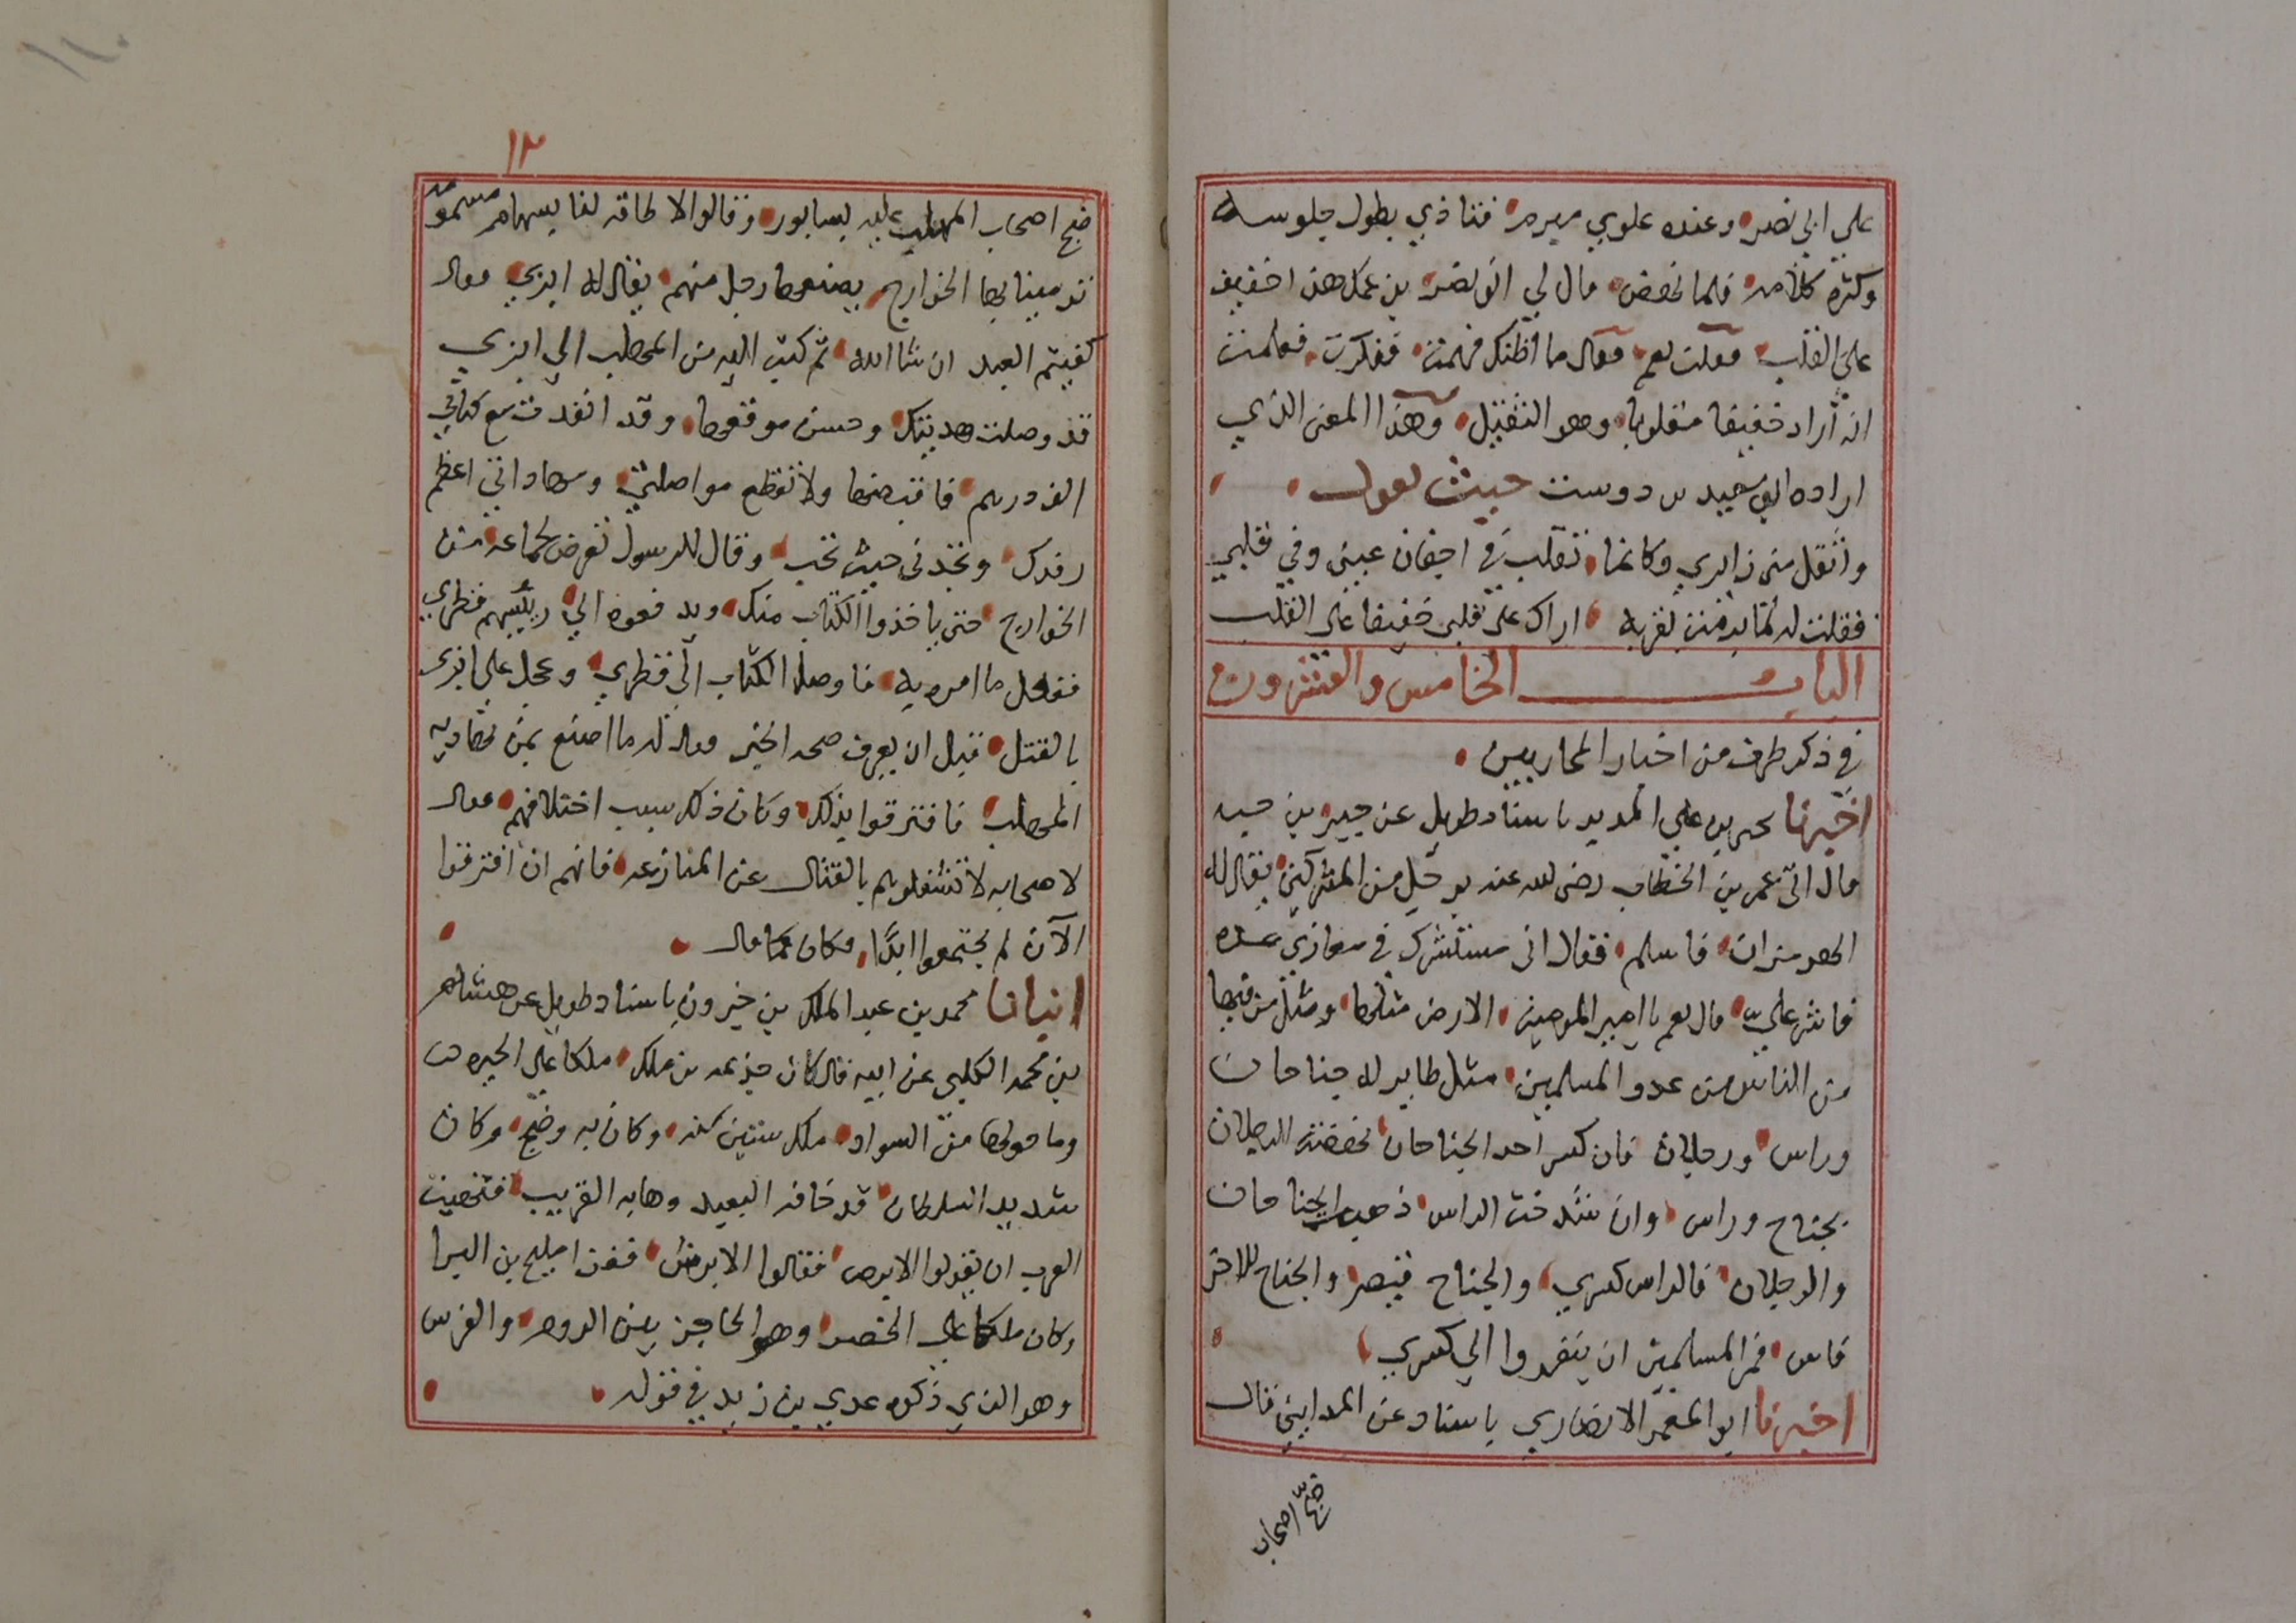 على ابي نصر وعنده علوي مبرم فتاذي بطول جلوسه
وكثره كلامه فلما نهض قال لي ابو نصر بن عمك هذا خفيف
على القلب فقلت نعم فقال ما اظنك فهمت ففكرت فعلمت
انه اراد خفيفا مقلوبا وهو الثقيل وهذا المعنى الذي
اراده ابو سعيد بن دوست حيث يقول
واثقل من زايري وكانما تقلب في اجفان عيني وفي قلبي
فقلت له لما برمت بقربه اراك على قلبي خفيفا على القلب
الباب الخامس والعشرون
في ذكر طرف من اخبار المحاربين
اخبرنا يحيى بن علي المدير باسناد طويل عن جبير بن حيه
قال اتى عمر بن الخطاب رضى الله عنه برجل من المشركين يقال له
الهرمزان فاسلم فقال انى مستشيرك في مغازي هذه
فاشر علي قال نعم يا امير المومنين الارض مثلها ومثل من فيها
من الناس من عدو المسلمين مثل طاير له جناحان
وراس ورجلان فان كسر احد الجناحان نهضت الرجلان
بجناح وراس وان شدخت الراس ذهب الجناحان
والرجلان فالراس كسري والجناح قيصر والجناح الاخر
فاس فمر المسلمين ان ينفروا الي كسري
اخبرنا ابو المعمر الانصاري باسناد عن المدايني قال
ضج اصحاب
١٢
ضج اصحاب المهلب عليه بسابور وقالوا لا طاقه لنا بسهام مسمومه
ترمينا بها الخوارج يصنعها رجل منهم يقال له ابزي فقال
كفيتم العبد ان شا الله ثم كتب اليه من المهلب الي ابزي
قد وصلت هديتك وحسن موقعها وقد انفدت مع كتابي
الف درهم فاقبضها ولا تقطع مواصلتي وسهاداتي اعظم
رفدك وتجدنى حيث تحب وقال للرسول تعرض لجماعه من
الخوارج حتى ياخذوا الكتاب منك ويدفعوه الي رييسهم قطري
ففعل ما امره به فاوصل الكتاب الى قطري وعجل علي ابزى
بالقتل قبل ان يعرف صحه الخبر فقال له ما اصنع بمن يهاديه
المهلب فافترقوا بذلك وكان ذلك سبب اختلافهم فقال
لاصحابه لا تشغلوهم بالقتال عن المنازعه فانهم ان افترقوا
الآن لم يجتمعوا ابدًا فكان كما قال
انبانا محمد بن عبد الملك بن خيرون باسناد طويل عن هشام
بن محمد الكلبي عن ابيه قال كان جذيمه بن ملك ملكا على الحيره
وما حولها من السواد ملك ستين سنه وكان به وضح وكان
شديد السلطان قد خافه البعيد وهابه القريب فتهيبت
العرب ان يقولوا الابرص فقالوا الابرش فغزا مليح بن البرا
وكان ملكا علي الحضر وهو الحاجز بين الروم والفرس
وهو الذي ذكره عدي بن زيد في قوله